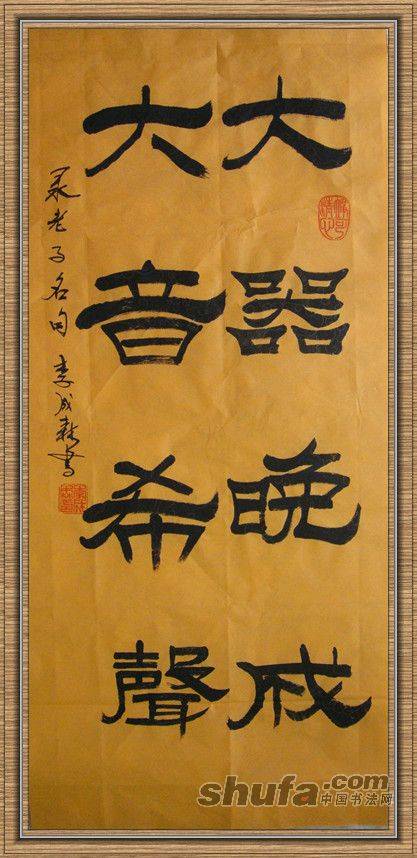 大器晚成
大音希聲
录老子名句 李成書
shufa.com
中国书法网